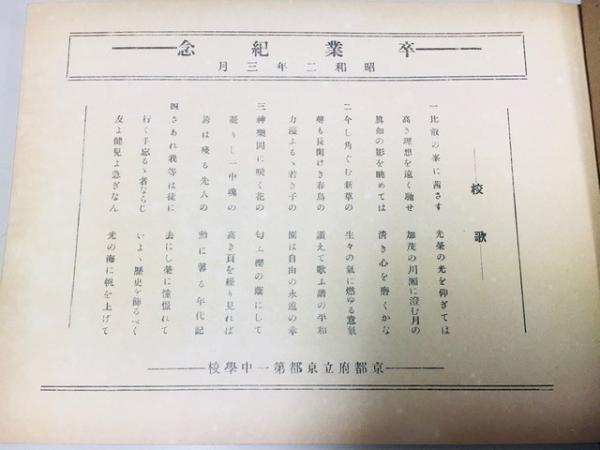 卒業紀念
昭和二年三月
校歌
一比叡の峯に茜さす 光榮の光を仰ぎては
高き理想を遠く馳せ 加茂の川瀬に澄む月の
眞如の影を眺めては 清き心を磨くかな
二今し角ぐむ新草の 生々の氣に燃ゆる意氣
聲も長閑けき春鳥の 讃えて歌ふ譜の平和
力溢ふるゝ若き子の 園は自由の永遠の幸
三神樂岡に咲く花の 匂ふ櫻の蔭にして
凝りし一中魂の 高き頁を繰り見れば
譽は殘る先人の 勳に馨る年代記
四さあれ我等は徒に 去にし榮に憧憬れて
行く手忘るゝ者ならじ いよゝ歴史を飾るべく
友よ健兒よ急ぎなん 光の海に帆を上げて
京都府立京都第一中學校